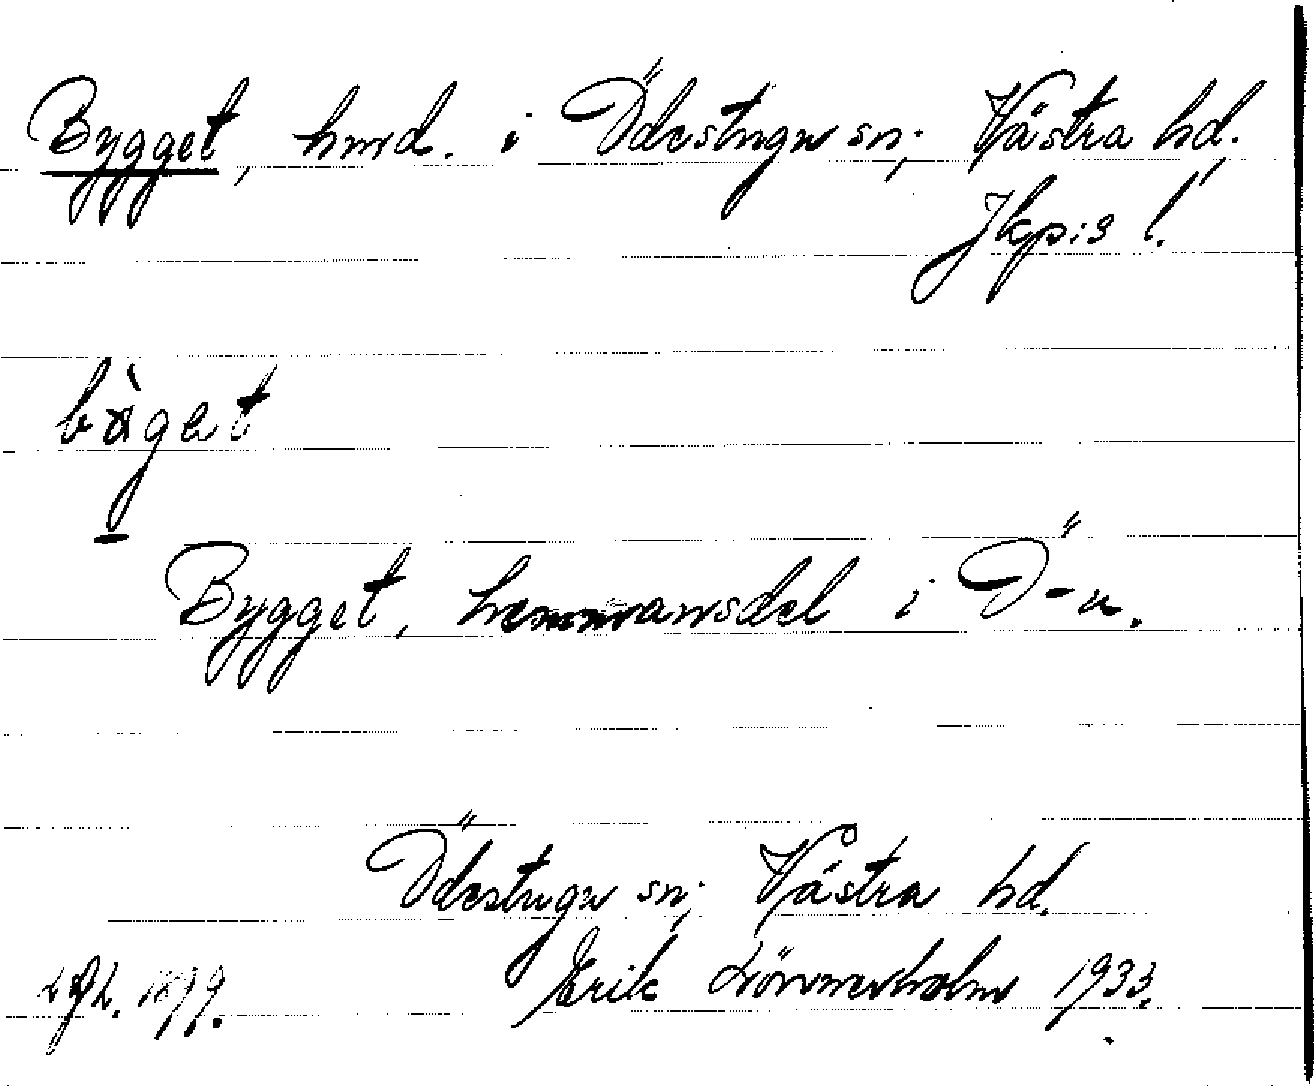 Bygget, hmd. i Ödestugu sn; Västra hd.
Jkpis l.
bỳgət
Bygget, hemmansdel i Ö-u.
Ödestugu sn; Västra hd.
Erik Lönnerholm 1933.
1899.